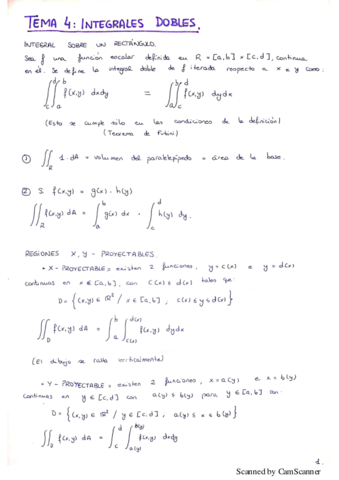 TEMA 4: INTEGRALES DOBLES.
INTEGRAL SOBRE UN RECTÁNGULO.
Sea f una función escalar definida en R = [a,b] × [c,d], continua
en él. Se define la integral doble de f iterada respecto a x e y como:
∫_c^d ∫_a^b f(x,y) dxdy = ∫_a^b ∫_c^d f(x,y) dydx
(Esto se cumple sólo en las condiciones de la definición)
(Teorema de Fubini)
① ∬_R 1·dA = volumen del paralelepípedo = área de la base.
② Si f(x,y) = g(x)·h(y)
∬_R f(x,y) dA = ∫_a^b g(x) dx · ∫_c^d h(y) dy.
REGIONES X, Y - PROYECTABLES.
* X - PROYECTABLE = existen 2 funciones, y = c(x) e y = d(x)
continuas en x ∈ [a,b], con c(x) ≤ d(x) tales que:
D = {(x,y) ∈ ℝ² / x ∈ [a,b], c(x) ≤ y ≤ d(x)}
∬_D f(x,y) dA = ∫_a^b ∫_{c(x)}^{d(x)} f(x,y) dydx
(El dibujo se ralla verticalmente)
* Y - PROYECTABLE = existen 2 funciones, x = a(y) e x = b(y)
continuas en y ∈ [c,d] con a(y) ≤ b(y) para y ∈ [a,b] con:
D = {(x,y) ∈ ℝ² / y ∈ [c,d], a(y) ≤ x ≤ b(y)}
∬_D f(x,y) dA = ∫_c^d ∫_{a(y)}^{b(y)} f(x,y) dxdy
1.
Scanned by CamScanner